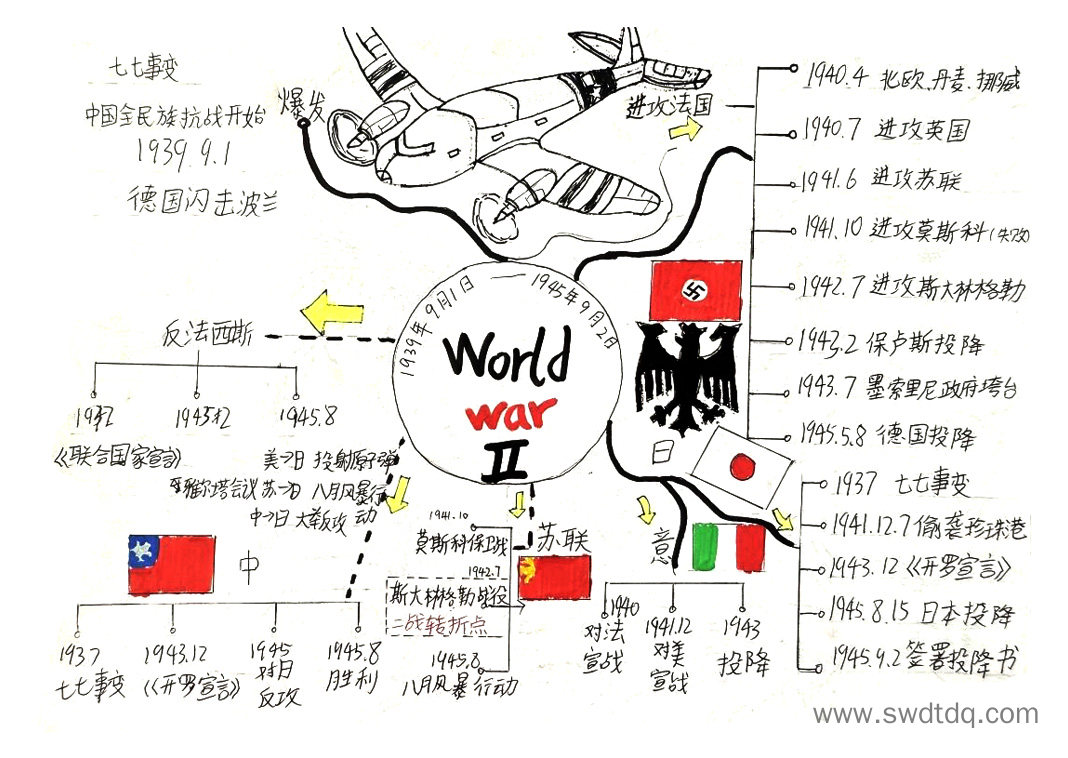 七七事变
中国全民族抗战开始
1939.9.1
德国闪击波兰
爆发
进攻法国
1940.4 北欧、丹麦、挪威
1940.7 进攻英国
1941.6 进攻苏联
1941.10 进攻莫斯科(失败)
1942.7 进攻斯大林格勒
1943.2 保卢斯投降
1943.7 墨索里尼政府垮台
1945.5.8 德国投降
1939年9月1日 — 1945年9月2日
World
war
II
反法西斯
1945.8
《联合国家宣言》
雅尔塔会议
美→日 投射原子弹
苏→日 八月风暴行动
中→日 大举反攻
中
1937
七七事变
1943.12
《开罗宣言》
1945
对日
反攻
1945.8
胜利
苏联
1941.10
莫斯科保卫战
1942.7
斯大林格勒战役
二战转折点
1945.8
八月风暴行动
意
1940
对法
宣战
1941.12
对美
宣战
1943
投降
日
1937 七七事变
1941.12.7 偷袭珍珠港
1943.12《开罗宣言》
1945.8.15 日本投降
1945.9.2 签署投降书
www.swdtdq.com